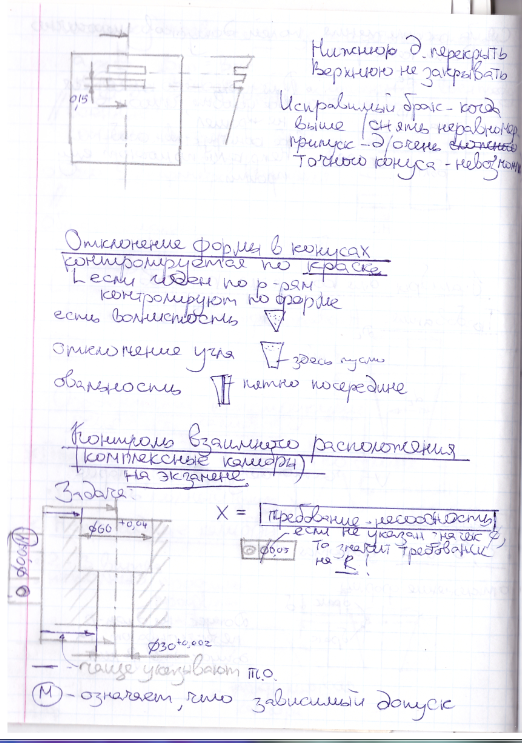 Нижнюю д. перекрыть
Верхнюю не закрывать
0,15
Исправимый брак - когда
выше /снять неравномер
припуск - д/очень сложного
точного конуса - невозмож
Отклонение формы в конусах
контролируется по краске
если годен по р-рам
контролируют по форме
есть волнистость
отклонение угла здесь пусто
овальность пятно посередине
Контроль взаимного расположения
(комплексные калибры)
на экзамене
Задача:
X = требование - несоосность
если не указан
ф60 +0,04
ф0,05
то значит требован
на R!
ф30 +0,002
- чаще указывают т.о.
М - означает, что зависимый допуск